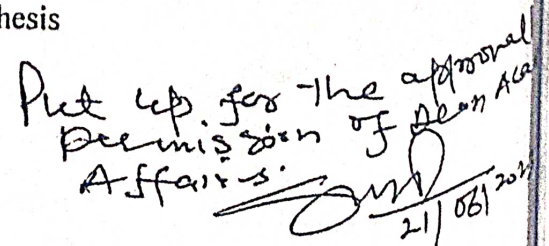 hesis
Put up for the approval
permission of Dean Aca
Affairs.
21/06/202